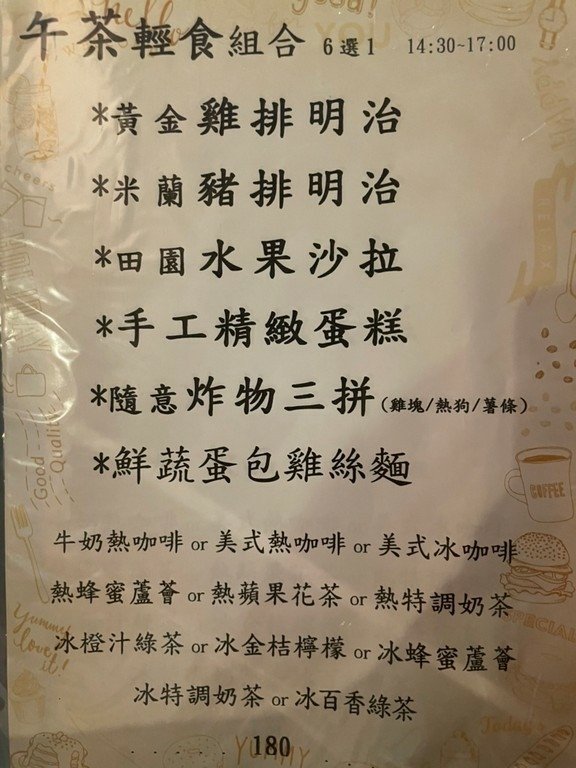 午茶輕食組合 6選1 14:30~17:00
*黃金雞排明治
*米蘭豬排明治
*田園水果沙拉
*手工精緻蛋糕
*隨意炸物三拼(雞塊/熱狗/薯條)
*鮮蔬蛋包雞絲麵
牛奶熱咖啡 or 美式熱咖啡 or 美式冰咖啡
熱蜂蜜蘆薈 or 熱蘋果花茶 or 熱特調奶茶
冰橙汁綠茶 or 冰金桔檸檬 or 冰蜂蜜蘆薈
冰特調奶茶 or 冰百香綠茶
180
cheers
Good
Quality
COFFEE
Yummy
love
it!
SPECIAL
Today's
YUMMY